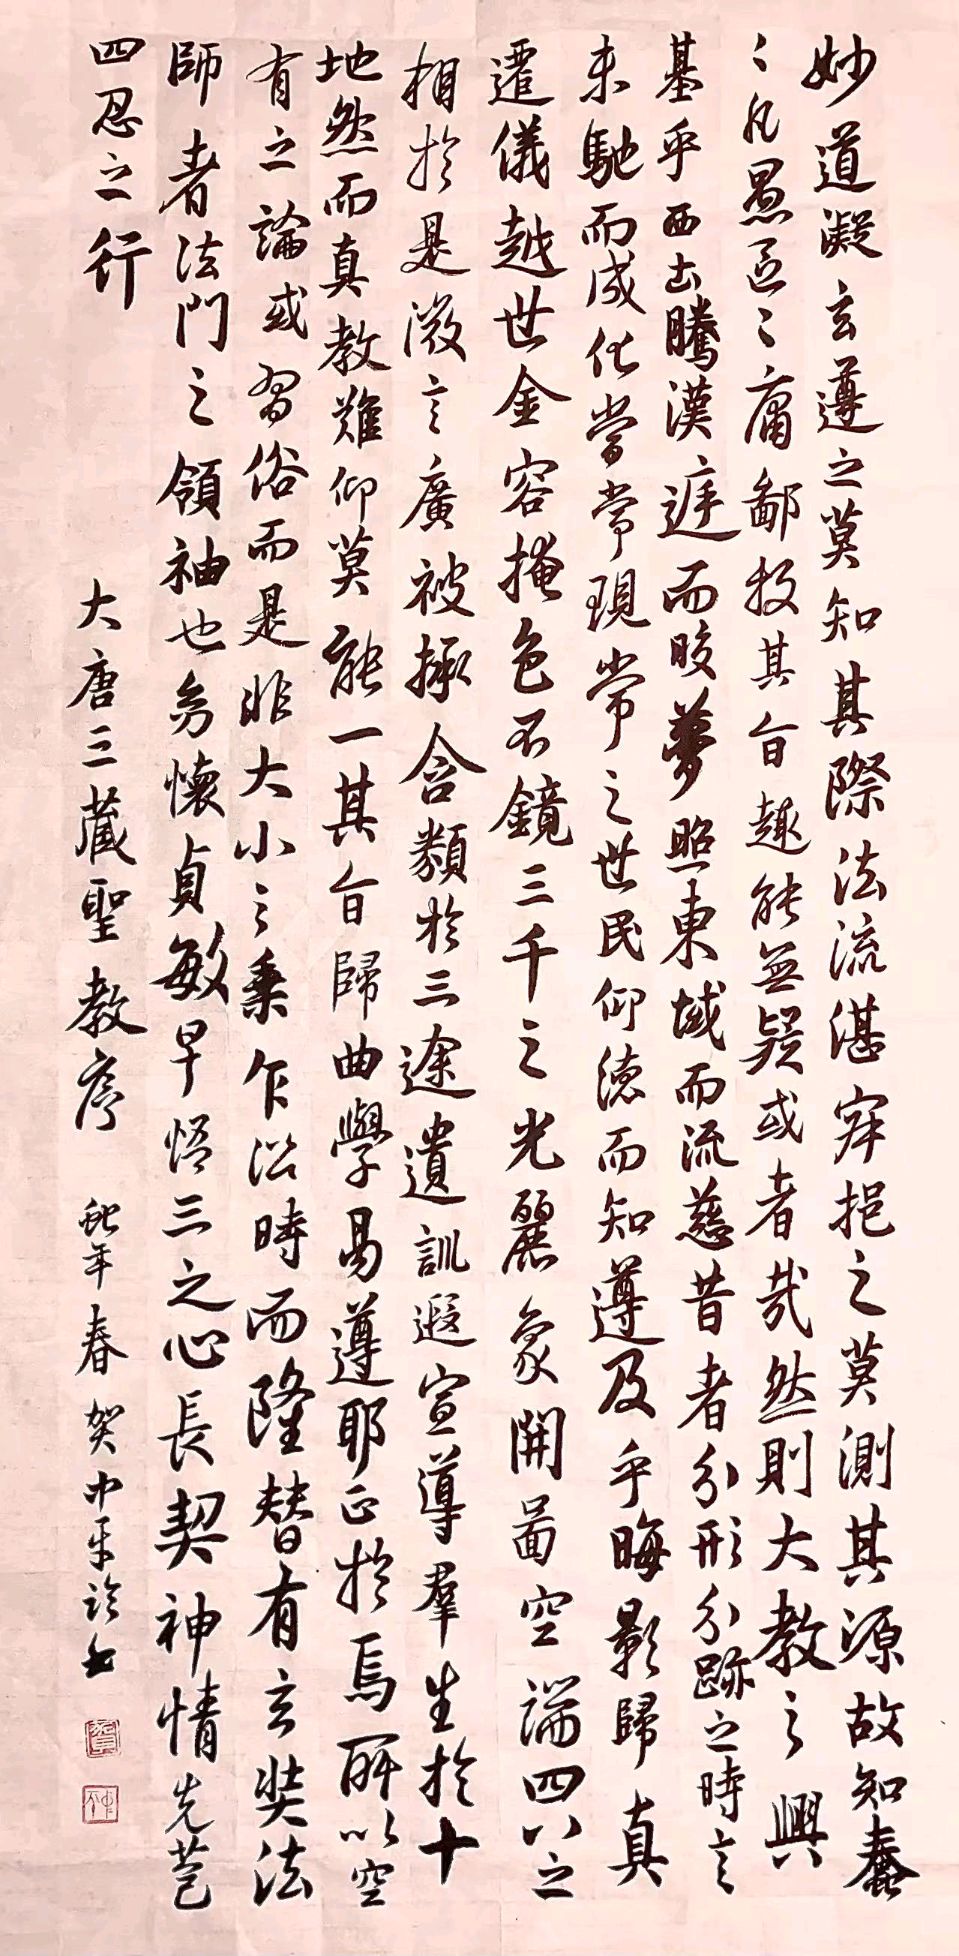 妙道凝玄遵之莫知其際法流湛寂挹之莫測其源故知蠢
〻凡愚區〻庸鄙投其旨趣能無疑或者哉然則大教之興
基乎西土騰漢庭而皎夢照東域而流慈昔者分形分跡之時言
未馳而成化當常現常之世民仰德而知遵及乎晦影歸真
遷儀越世金容掩色不鏡三千之光麗象開啚空端四八之
相於是微言廣被拯含類於三途遺訓遐宣導群生於十
地然而真教難仰莫能一其旨歸曲學易遵耶正於焉所以空
有之論或習俗而是非大小之乘乍沿時而隆替有玄奘法
師者法門之領袖也幼懷貞敏早悟三之心長契神情先苞
四忍之行
大唐三藏聖教序
蛇年春賀中平詮書